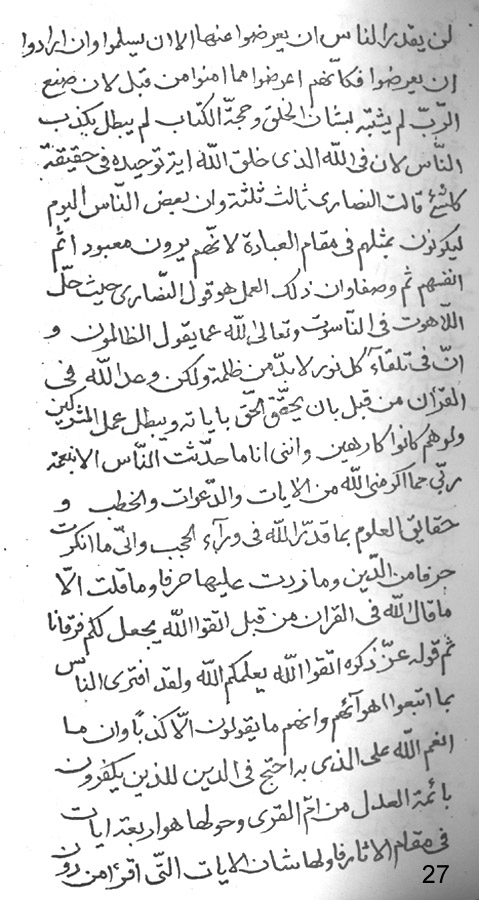 لن يقدر الناس ان يعرضوا عنها الا ان يسلموا وان ارادوا
ان يعرضوا فكانّهم اعرضوا مما امنوا من قبل لان صنع
الربّ لم يشتبّه بشان الخلق و حجة الكتاب لم يبطل بكذب
النّاس لان في اللّه الذى خلق اللّه اية توحيده في حقيقة
كلشئ قالت النصارى ثالث ثلثة وان بعض النّاس اليوم
ليكونون بمثلهم في مقام العبادة لانّهم يرون معبود اثم
انفسهم ثم وصفا وان ذلك العمل هو قول النّصارى حيث حلّ
اللّاهوت في النّاسوت وتعالى اللّه عما يقول الظالمون و
انّ في تلقاۤء كل نور لا بدّ من ظلمة ولكن وعد اللّه في
القرآن من قبل بان يحقّق الحّق باياته ويبطل عمل المشركين
ولو هم كانوا كارهين واننى انا ما حدّثت النّاس الا بنعمة
ربّي مما اكرمنى اللّه من الايات والدّعوات والخطب و
حقايق العلوم بما قدّر اللّه في ورآء الحجب وانّى ما انكرت
حرفا من الدّين وما زدت عليها حرفا وما قلت الّا
ما قال اللّه في القران من قبل اتقوا اللّه يجعل لكم فرقانا
ثم قوله عزّ ذكره اتّقوا اللّه يعلمكم اللّه ولقد افترى الناس
بما اتبعوا اهوآئهم وانهم ما يقولون الّا كذبًا وان ما
انعم اللّه على الذى به احتج في الدين للذين يكفرون
بائمة العدل من امّ القرى وحولها هو اربعة ايات
في مقام الاثار فاولها شان الايات التّى اقرء من دون
27